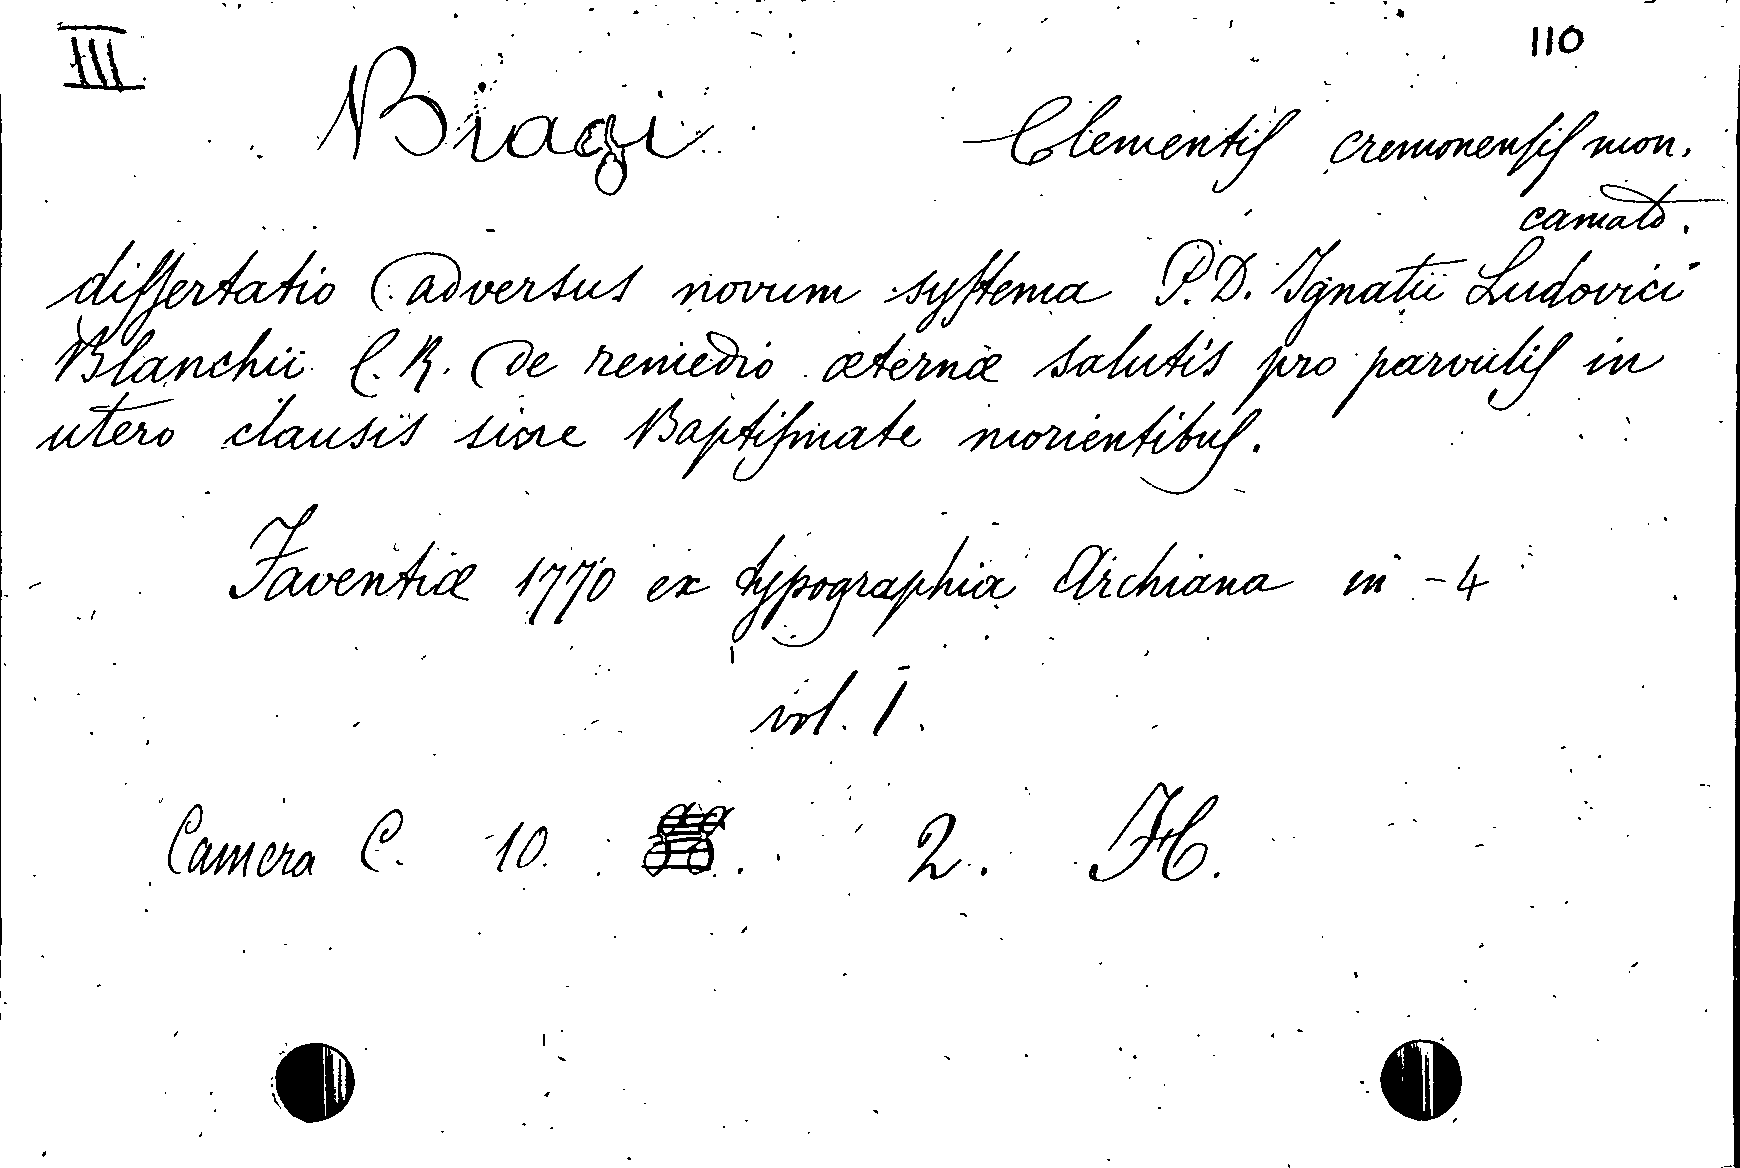 III 110
Biagi Clementis cremonensis mon.
camald.
dissertatio adversus novum systema P. D. Ignatii Ludovici
Blanchii C. R. de remedio æternæ salutis pro parvulis in
utero clausis sine Baptismate morientibus.
Faventiæ 1770 ex typographia Archiana in - 4
vol. 1.
Camera C. 10. 2. H.